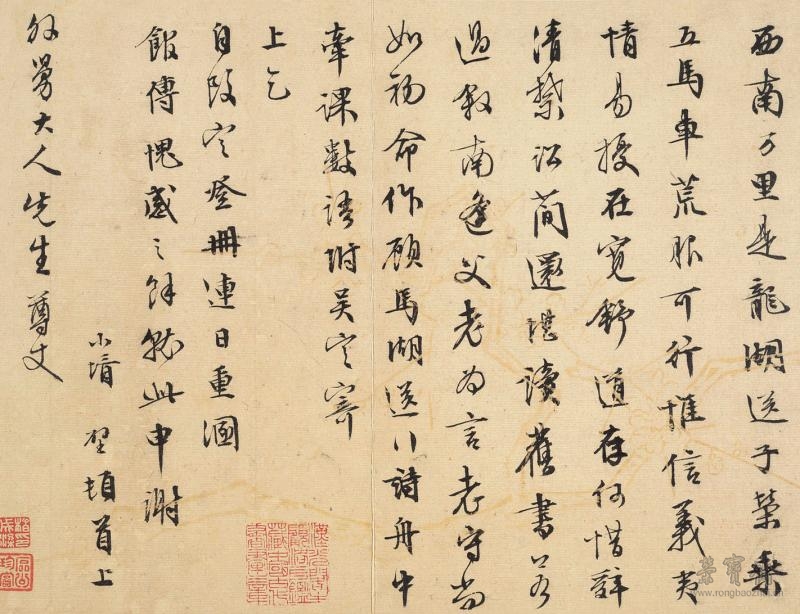 西南万里是龍湖送子榮乘
五馬車荒服可行惟信義夷
情易擾在寬舒道存何惜辭
清禁訟簡還堪讀舊書
過敘南逢父老為言老守尚
如初命作顧馬湖送行詩舟中
牽課數語附吳宅寄
上乞
自改定登冊連日重溷
飯傳愧感〻餘就此申謝
小壻 頓首上
大人先生尊丈
榮寶齋
www.rongbaozhai.cn